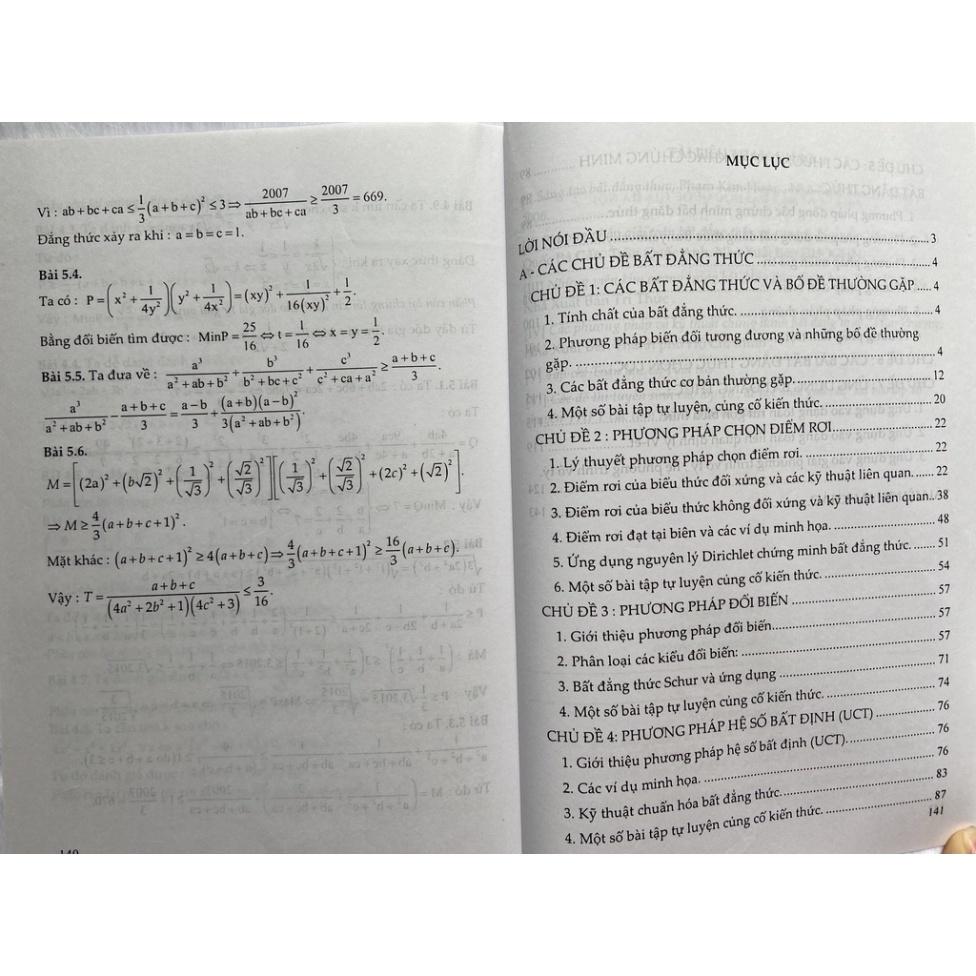 Vì : ab + bc + ca ≤ 1/3 (a + b + c)² ≤ 3 ⇒ 2007/(ab + bc + ca) ≥ 2007/3 = 669.
Đẳng thức xảy ra khi : a = b = c = 1.
Bài 5.4.
Ta có : P = (x² + 1/(4y²))(y² + 1/(4x²)) = (xy)² + 1/(16(xy)²) + 1/2.
Bằng đổi biến tìm được : MinP = 25/16 ⇔ t = 1/16 ⇔ x = y = 1/2.
Bài 5.5. Ta đưa về : a³/(a² + ab + b²) + b³/(b² + bc + c²) + c³/(c² + ca + a²) ≥ (a + b + c)/3.
a³/(a² + ab + b²) − (a + b + c)/3 = (a − b)/3 + (a + b)(a − b)²/(3(a² + ab + b²)).
Bài 5.6.
M = [(2a)² + (b√2)² + (1/√3)² + (√2/√3)²][(1/√3)² + (√2/√3)² + (2c)² + (√2)²].
⇒ M ≥ 4/3 (a + b + c + 1)².
Mặt khác : (a + b + c + 1)² ≥ 4(a + b + c) ⇒ 4/3 (a + b + c + 1)² ≥ 16/3 (a + b + c).
Vậy : T = (a + b + c)/((4a² + 2b² + 1)(4c² + 3)) ≤ 3/16.
MỤC LỤC
LỜI NÓI ĐẦU ... 3
A - CÁC CHỦ ĐỀ BẤT ĐẲNG THỨC ... 4
CHỦ ĐỀ 1: CÁC BẤT ĐẲNG THỨC VÀ BỔ ĐỀ THƯỜNG GẶP ..... 4
1. Tính chất của bất đẳng thức. ... 4
2. Phương pháp biến đổi tương đương và những bổ đề thường
gặp. ... 4
3. Các bất đẳng thức cơ bản thường gặp. ... 12
4. Một số bài tập tự luyện, củng cố kiến thức. ... 20
CHỦ ĐỀ 2 : PHƯƠNG PHÁP CHỌN ĐIỂM RƠI ... 22
1. Lý thuyết phương pháp chọn điểm rơi. ... 22
2. Điểm rơi của biểu thức đối xứng và các kỹ thuật liên quan. ...... 22
3. Điểm rơi của biểu thức không đối xứng và kỹ thuật liên quan.. 38
4. Điểm rơi đạt tại biên và các ví dụ minh họa. ... 48
5. Ứng dụng nguyên lý Dirichlet chứng minh bất đẳng thức. ...... 51
6. Một số bài tập tự luyện củng cố kiến thức. ... 54
CHỦ ĐỀ 3 : PHƯƠNG PHÁP ĐỔI BIẾN ... 57
1. Giới thiệu phương pháp đổi biến ... 57
2. Phân loại các kiểu đổi biến: ... 57
3. Bất đẳng thức Schur và ứng dụng ... 71
4. Một số bài tập tự luyện củng cố kiến thức. ... 74
CHỦ ĐỀ 4: PHƯƠNG PHÁP HỆ SỐ BẤT ĐỊNH (UCT) ... 76
1. Giới thiệu phương pháp hệ số bất định (UCT). ... 76
2. Các ví dụ minh họa. ... 76
3. Kỹ thuật chuẩn hóa bất đẳng thức. ... 83
4. Một số bài tập tự luyện củng cố kiến thức. ... 87
141